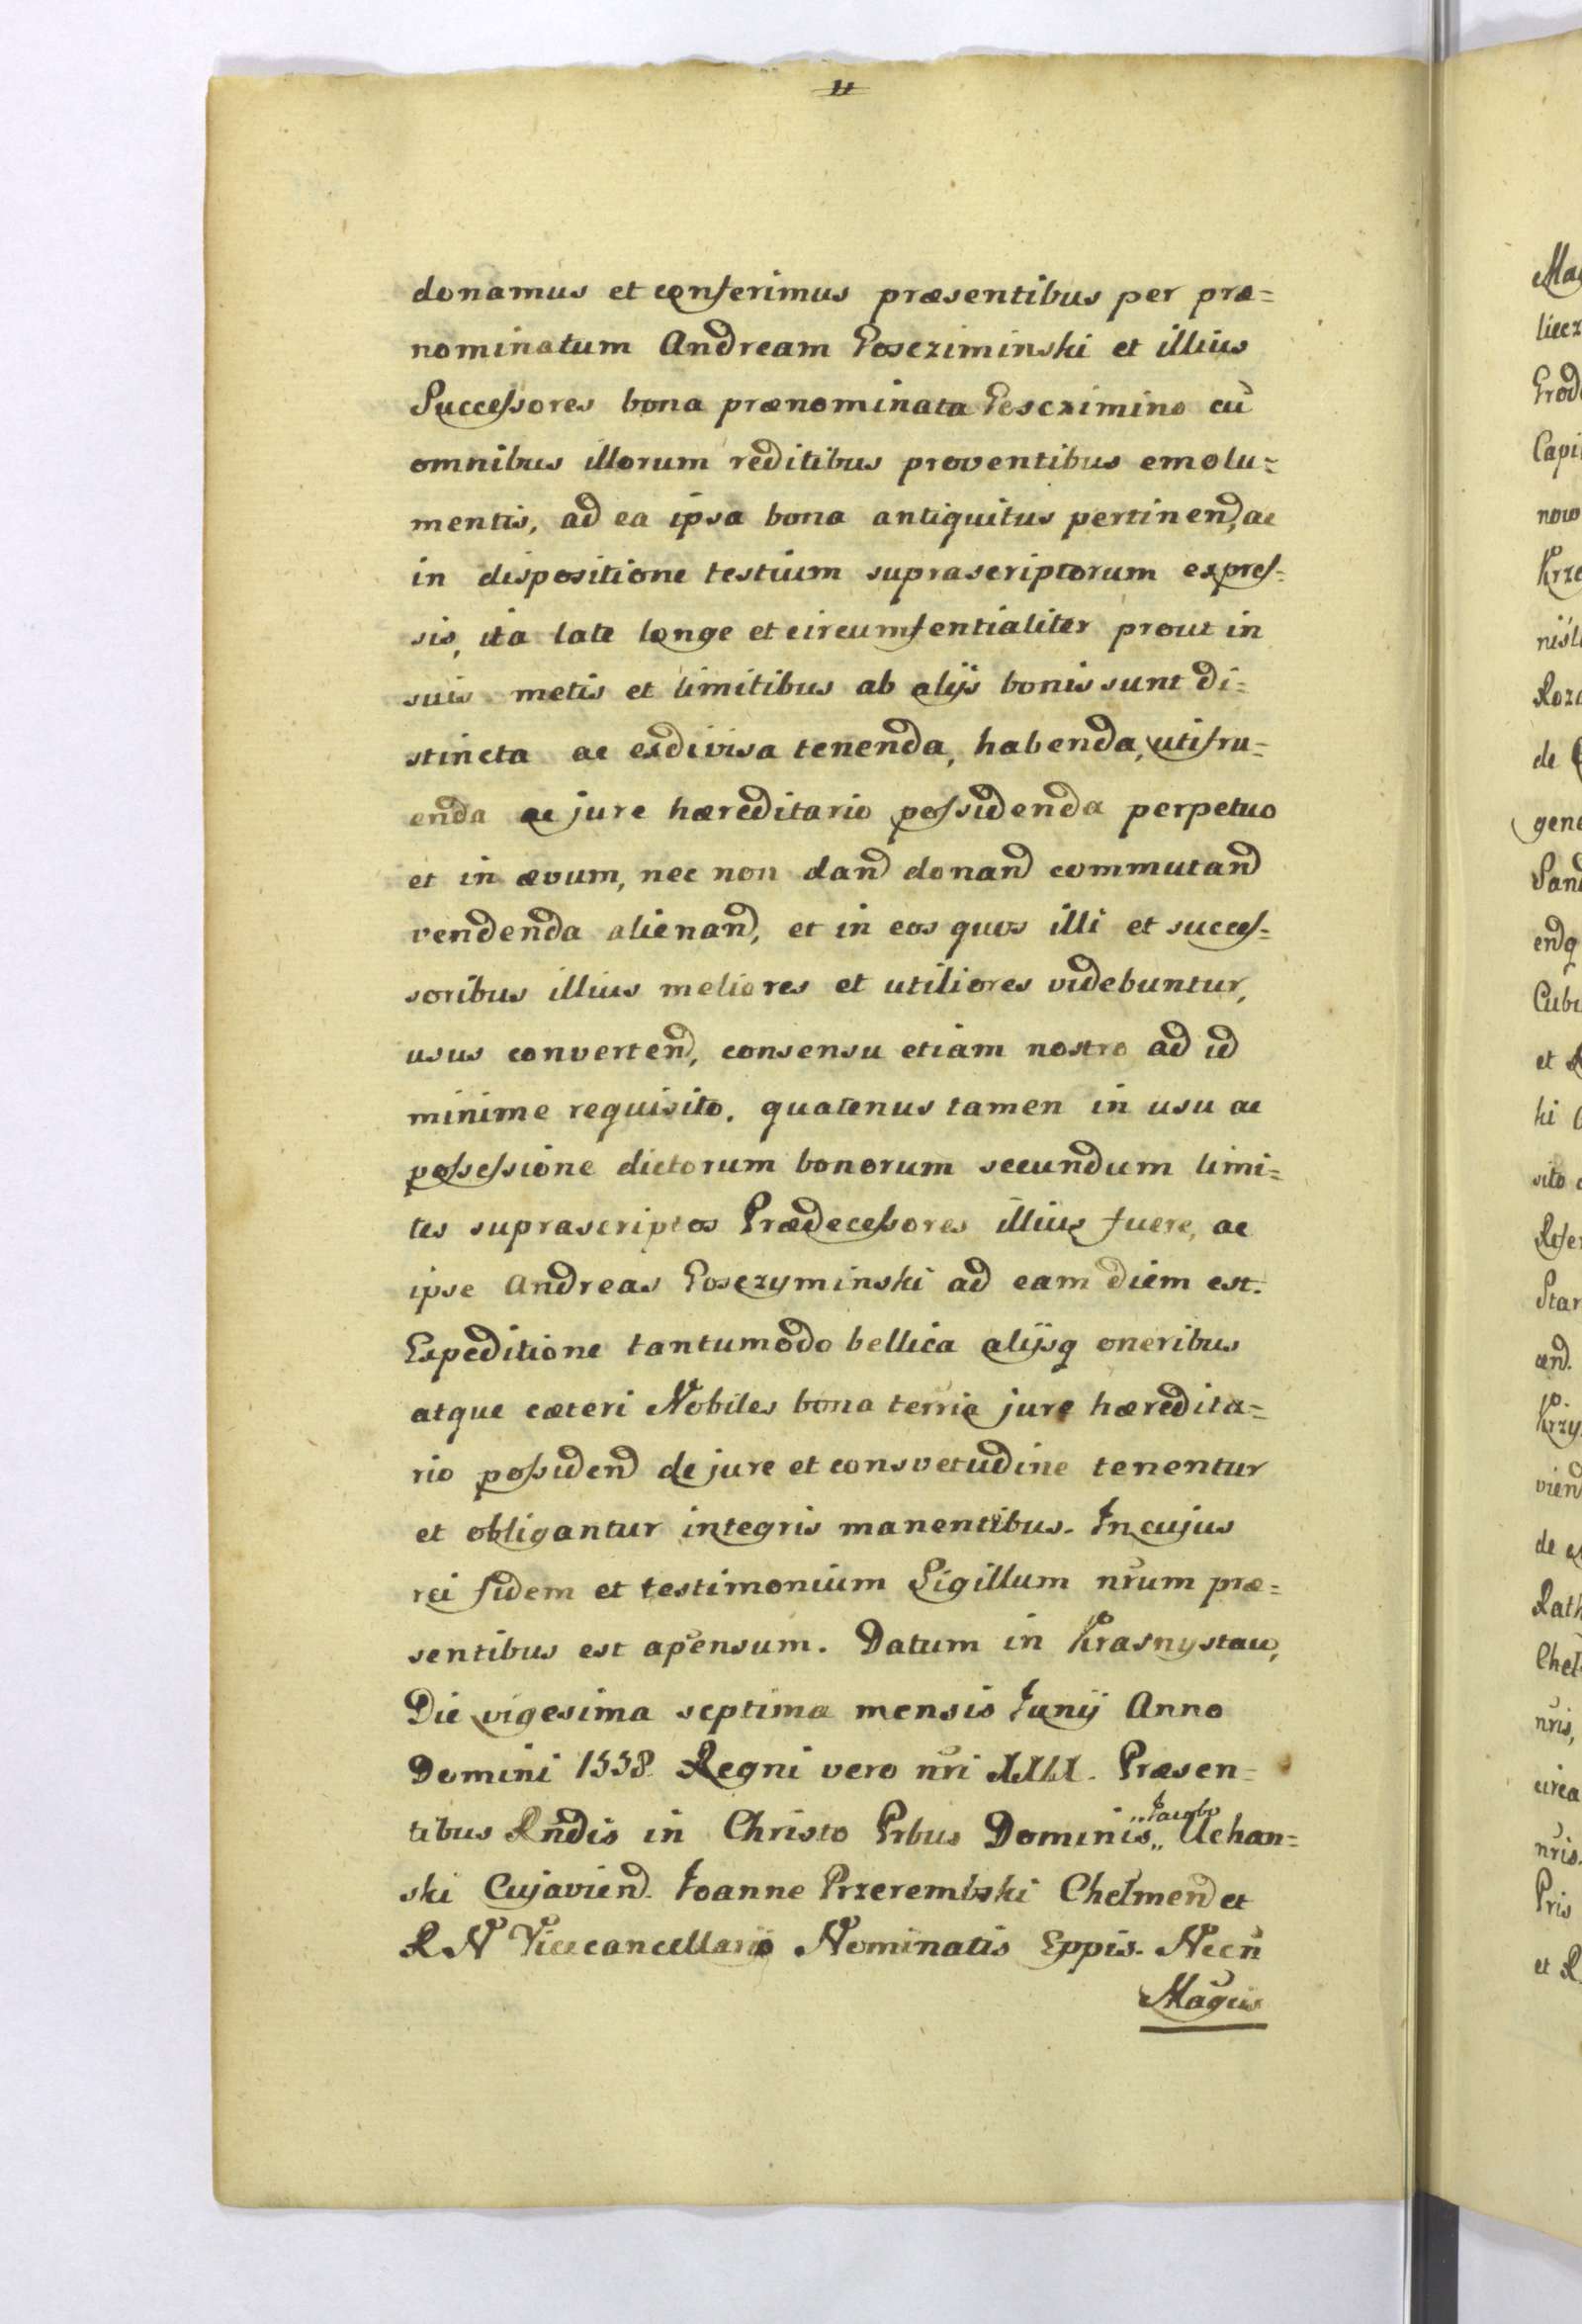 11
donamus et conferimus præsentibus per præ=
nominatum Andream Goscziminski et illius
Successores bona prænominata Gesczimino cũ
omnibus illorum reditibus proventibus emolu=
mentis, ad ea ipsa bona antiquitus pertinend, ac
in dispositione testium suprascriptorum expres=
sis, ita late longe et circumferentialiter prout in
suis metis et limitibus ab alijs bonis sunt di=
stincta ac exdivisa tenenda, habenda, utifru=
enda ac jure hæreditario possidenda perpetuo
et in ævum, nec non dand donand commutand
vendenda alienand, et in eos quos illi et succes=
soribus illius meliores et utiliores videbuntur,
usus convertend, consensu etiam nostro ad id
minime requisito. quatenus tamen in usu ac
possessione dictorum bonorum secundum limi=
tes suprascriptos Prædecessores illius fuere, ac
ipse Andreas Gosczyminski ad eam diem est.
Expeditione tantumodo bellica alijsq oneribus
atque cæteri Nobiles bona terrie jure hæredita=
rio possidend de jure et consvetudine tenentur
et obligantur integris manentibus. In cujus
rei fidem et testimonium Sigillum nrum præ=
sentibus est apensum. Datum in Krasnystaw,
Die vigesima septima mensis Junij Anno
Domini 1558 Regni vero nri XXIX. Præsen=
tibus Rndis in Christo Prbus Dominis „Jacobo„ Uchan=
ski Cujaviend. Joanne Przerembski Chelmend et
R N Vicecancellario Nominatis Eppis. Necn
Magcis